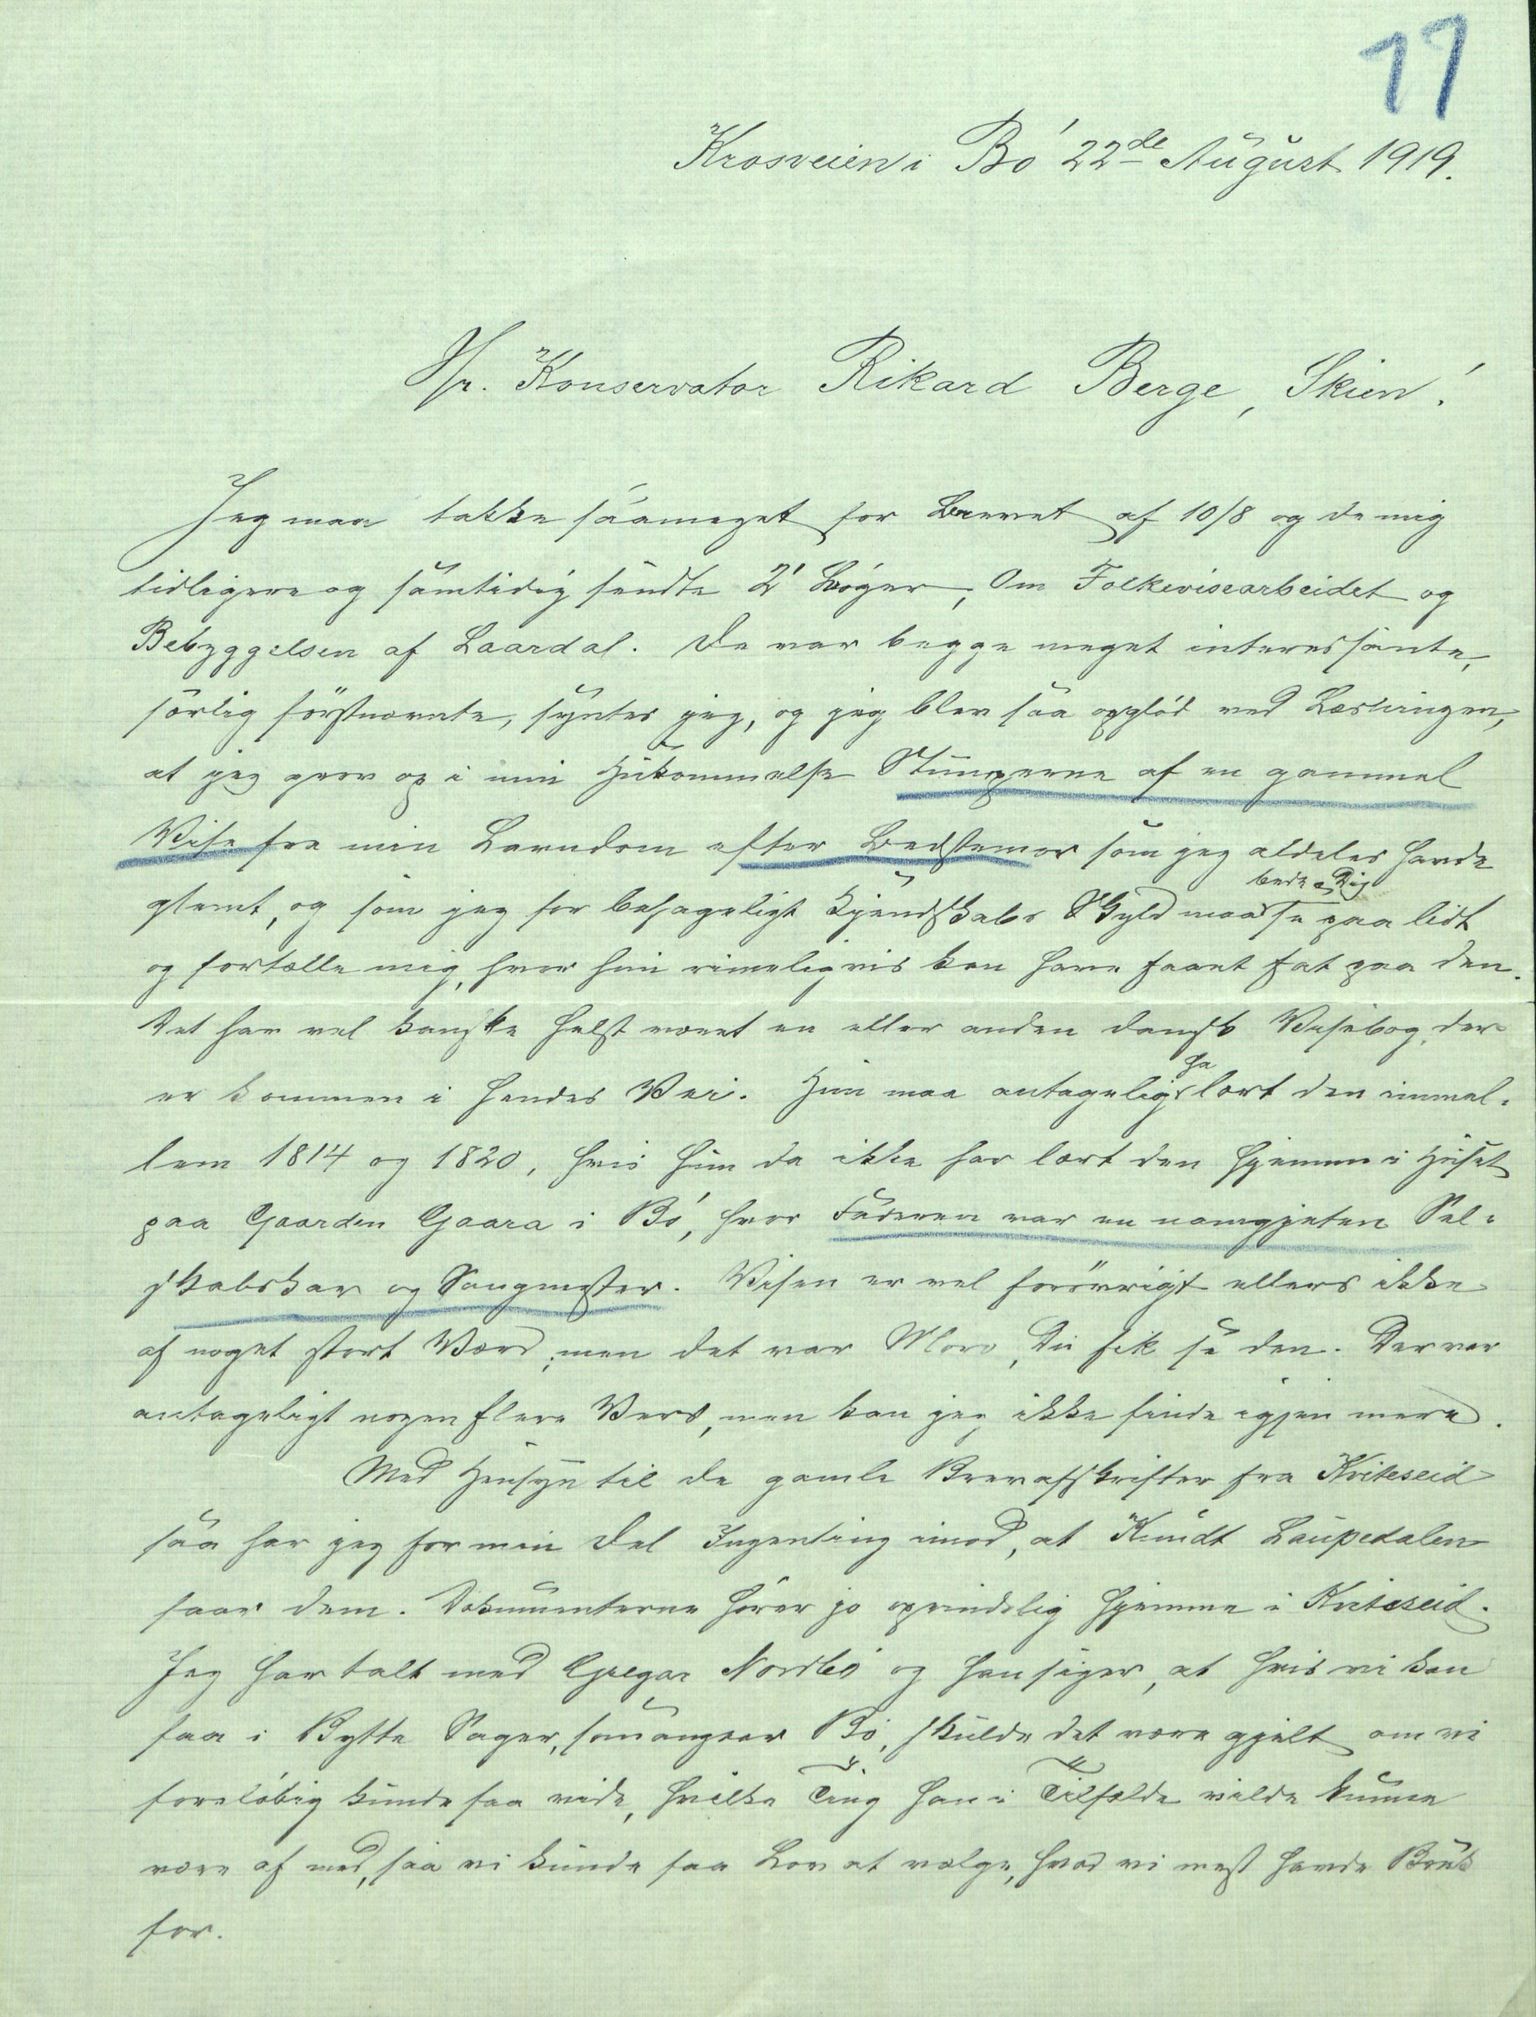 11
Krosveien i Bø 22de August 1919.
Hr. Konservator Rikard Berge, Skien!
Jeg maa takke saameget for Brevet af 10/8 og de mig
tidligere og samtidig sendte 2 Bøger, Om Folkevisearbeidet og
Bebyggelsen af Laardal. De var begge meget interessante,
særlig førstnævnte, syntes jeg, og jeg blev saa opglød ved Læsningen,
at jeg grov op i min Hukommelse Stumperne af en gammel
Vise fra min Barndom efter Bedstemor som jeg aldeles havde
glemt, og som jeg for behageligt Kjendskabs Skyld maa bede Dig se paa lidt
og fortælle mig, hvor hun rimeligvis kan have faaet fat paa den.
Det har vel kanske helst været en eller anden dansk Visebog, der
er kommen i hendes Vei. Hun maa antagelig ha lært den immel-
lem 1814 og 1820, hvis hun da ikke har lært den hjemme i Huset
paa Gaarden Gaara i Bø, hvor Faderen var en namgjeten Sel-
skabskar og Sangmester. Visen er vel forøvrigt ellers ikke
af noget stort Værd, men det var Moro, Du fik se den. Der var
antageligt nogen flere Vers, men kan jeg ikke finde igjen mere.
Med Hensyn til de gamle Brevafskrifter fra Kviteseid
saa har jeg for min Del Ingenting imod, at Knudt Laupedalen
faar dem. Dokumenterne hører jo oprindelig hjemme i Kviteseid.
Jeg har talt med Gregar Nordbø og han siger, at hvis vi kan
faa i Bytte Sager, som angaar Bø, skulde det være gjilt om vi
foreløbig kunde faa vide, hvilke Ting han i Tilfælde vilde kunne
være af med, saa vi kunde faa Lov at vælge, hvad vi mest havde Bruk
for.